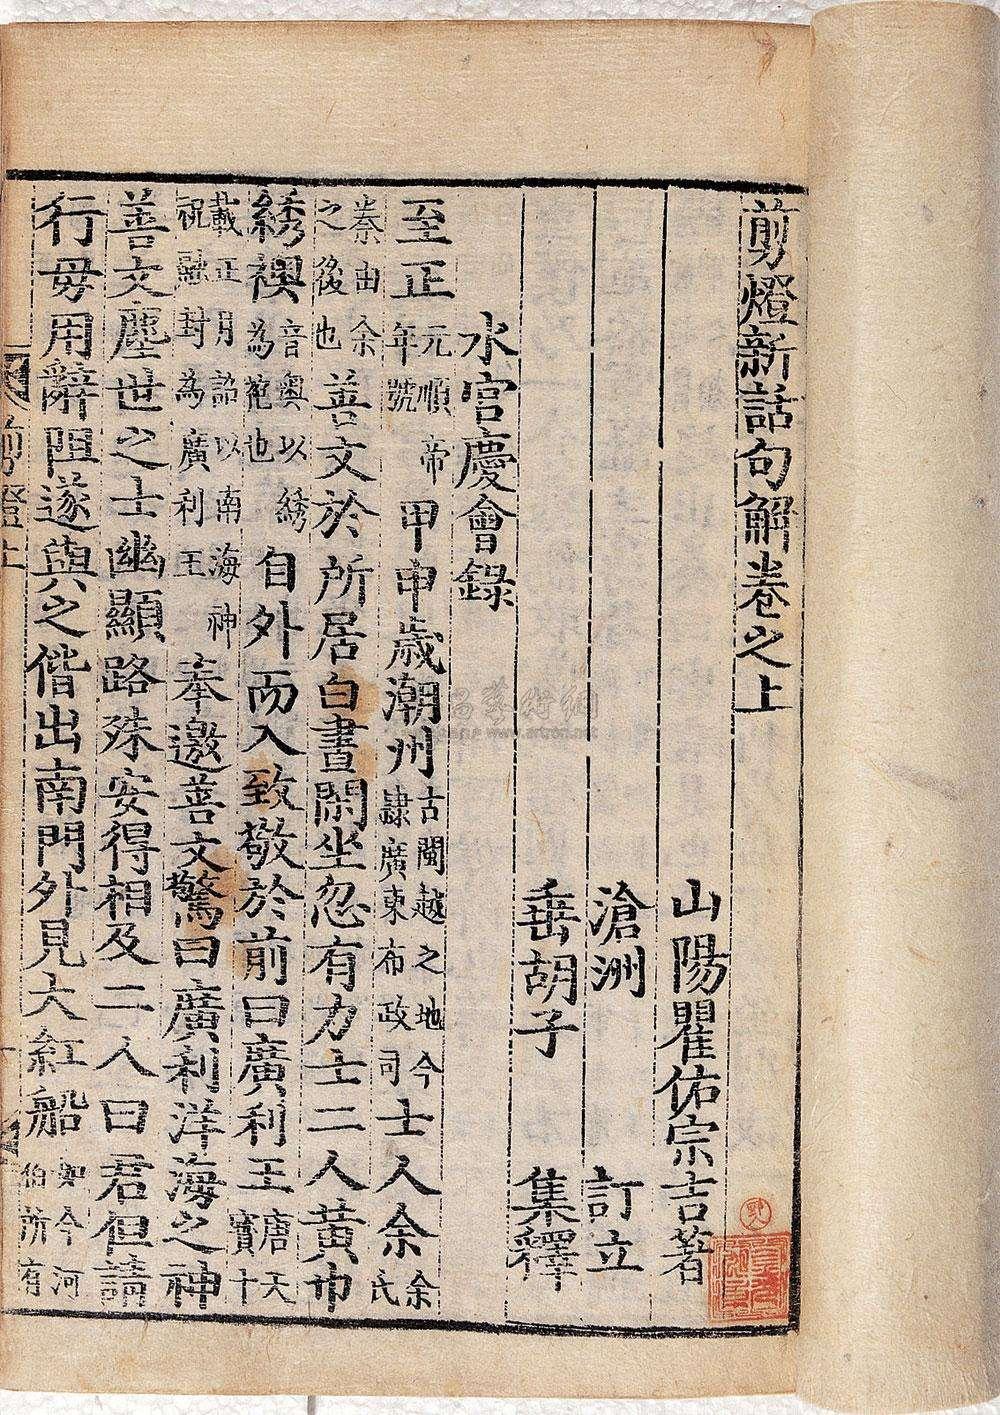 剪燈新話句解卷之上
山陽瞿佑宗吉著
滄洲 訂立
垂胡子 集釋
水宮慶會錄
至正元順帝年號甲申歲潮州古閩越之地今隷廣東布政司士人余余氏
秦由余之後也善文於所居白晝閑坐忽有力士二人黄巾
綉襖音奥以綉為袍也自外而入致敬於前曰廣利王唐天寶十
載正月詔以南海神祝融封為廣利王奉邀善文驚曰廣利洋海之神
善文塵世之士幽顯路殊安得相及二人曰君但請
行毋用辭阻遂與之偕出南門外見大紅船如今河伯所有
www.artron.net